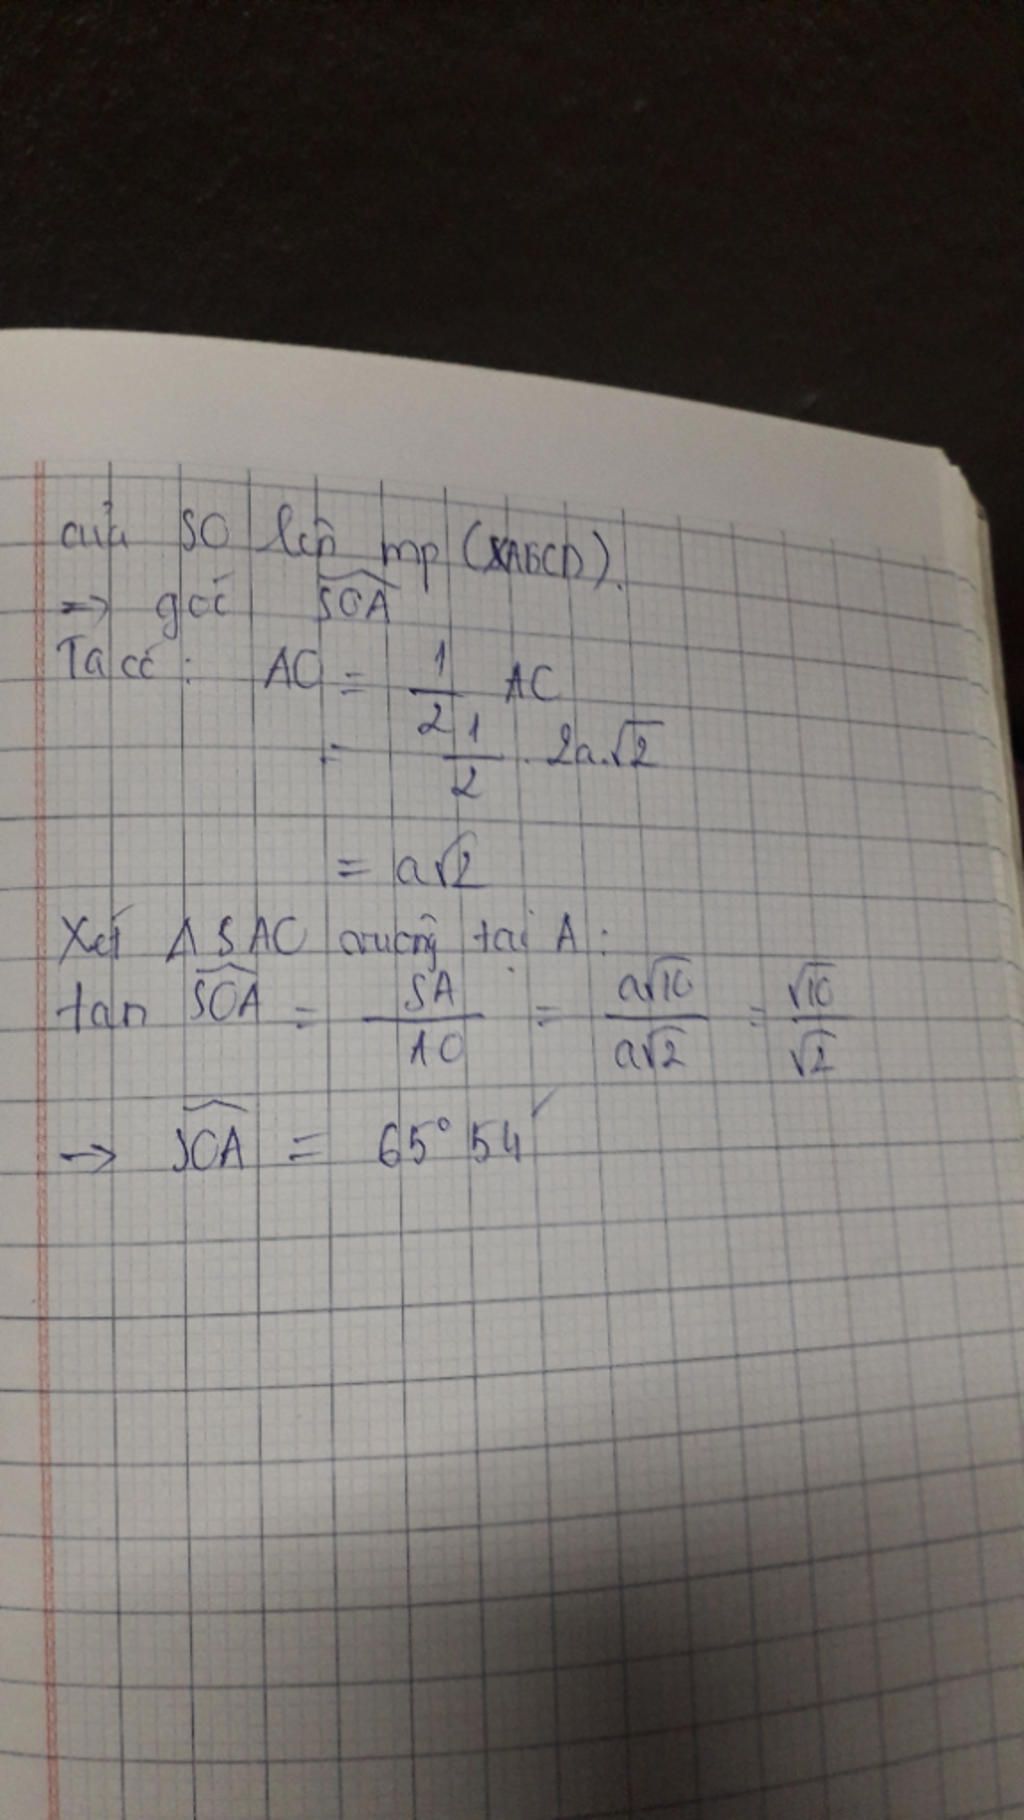 của SO lên mp (ABCD).
=> góc SOA
Ta có : AO = 1/2 AC
= 1/2 . 2a.√2
= a√2
Xét Δ SAO vuông tại A :
tan SOA = SA/AO = a√10/a√2 = √10/√2
→ SOA = 65° 54'